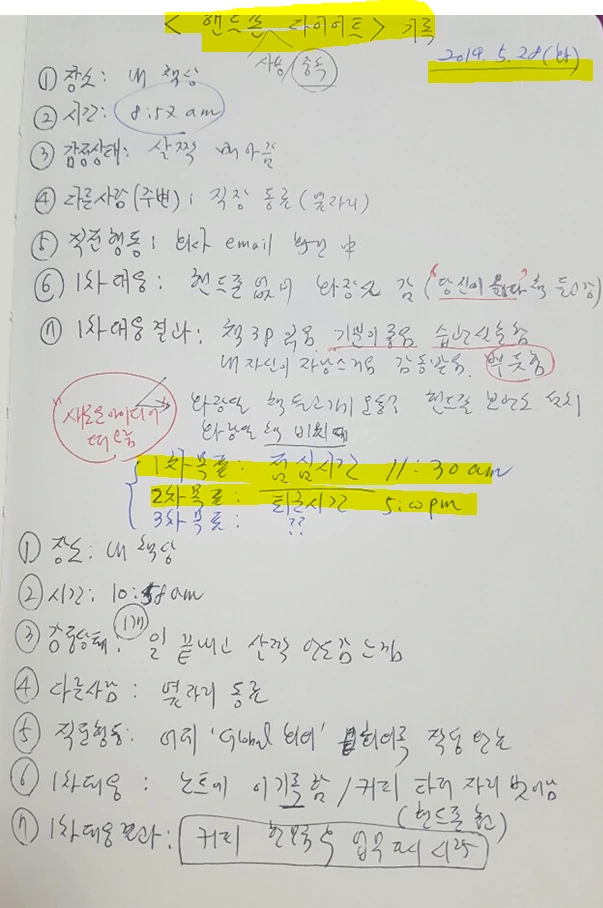 < 핸드폰 다이어트 > 기록
사용/중독
2019. 5. 28 (화)
① 장소: 내 책상
② 시간: 8:52 am
③ 감정상태: 살짝 배아픔
④ 다른사람(주변): 직장 동료 (옆자리)
⑤ 직전행동: 회사 email 확인 中
⑥ 1차대응: 핸드폰 없이 화장실 감 ("당신이 옳다" 책 들고감)
⑦ 1차대응 결과: 책 3p 읽음 기분이 좋음 습관신호함
내 자신이 자랑스러움 감동받음. 뿌듯함
새로운 아이디어 떠오름
→ 화장실 책 들고가기 운동? 핸드폰 보안도 설치
화장실 책 비치대
1차목표: 점심시간 11:30 am
2차목표: 퇴근시간 5:00 pm
3차목표: ??
① 장소: 내 책상
② 시간: 10:58 am
③ 감정상태: 일 1개 끝내고 살짝 안도감 느낌
④ 다른사람: 옆자리 동료
⑤ 직전행동: 어제 'Global 회의' 회의록 작성 완료
⑥ 1차대응: 노트에 이 기록함 / 커피 타러 자리 벗어남
(핸드폰 놓고)
⑦ 1차대응 결과: 커피 한모금 후 업무 다시 시작